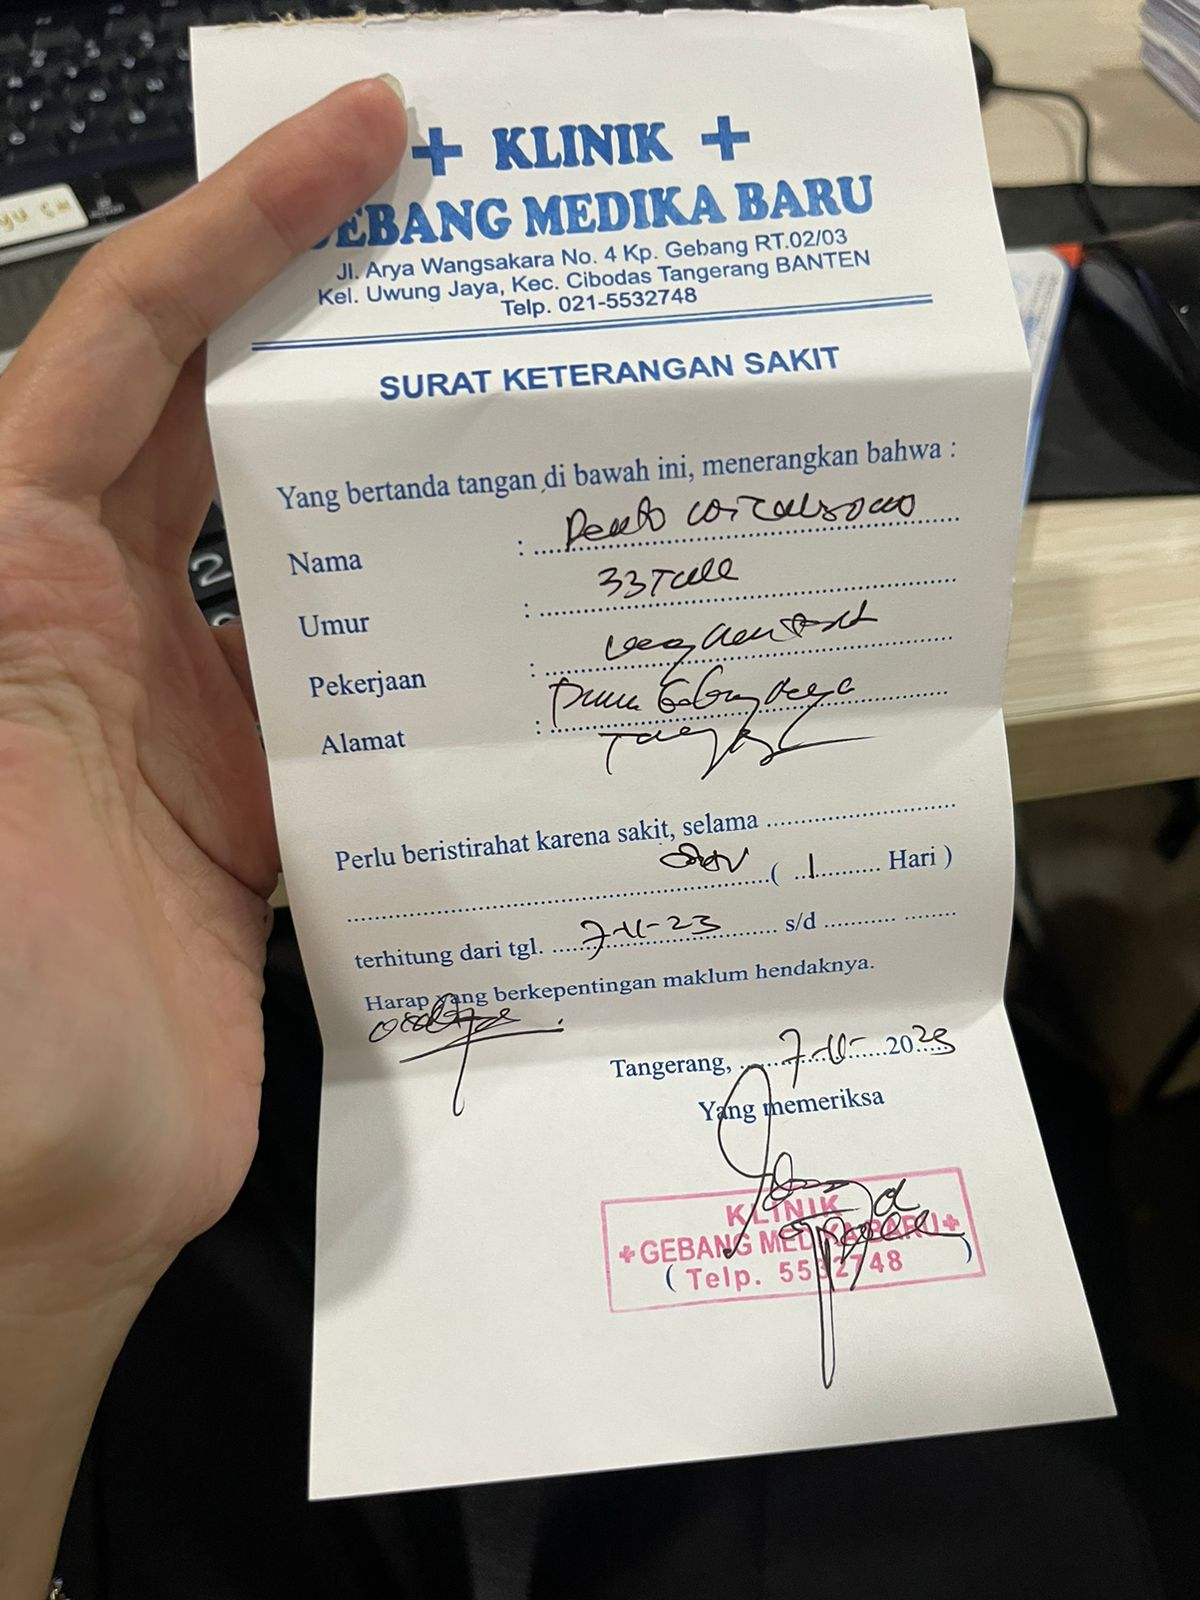 KLINIK
EBANG MEDIKA BARU
Jl. Arya Wangsakara No. 4 Kp. Gebang RT.02/03
Kel. Uwung Jaya, Kec. Cibodas Tangerang BANTEN
Telp. 021-5532748
SURAT KETERANGAN SAKIT
Yang bertanda tangan di bawah ini, menerangkan bahwa :
Nama :
Umur : 33
Pekerjaan :
Alamat :
Perlu beristirahat karena sakit, selama
( 1 Hari )
terhitung dari tgl. 7-11-23 s/d
Harap yang berkepentingan maklum hendaknya.
Tangerang, 7-11-2023
Yang memeriksa
KLINIK
GEBANG MEDIKA BARU
( Telp. 5532748 )